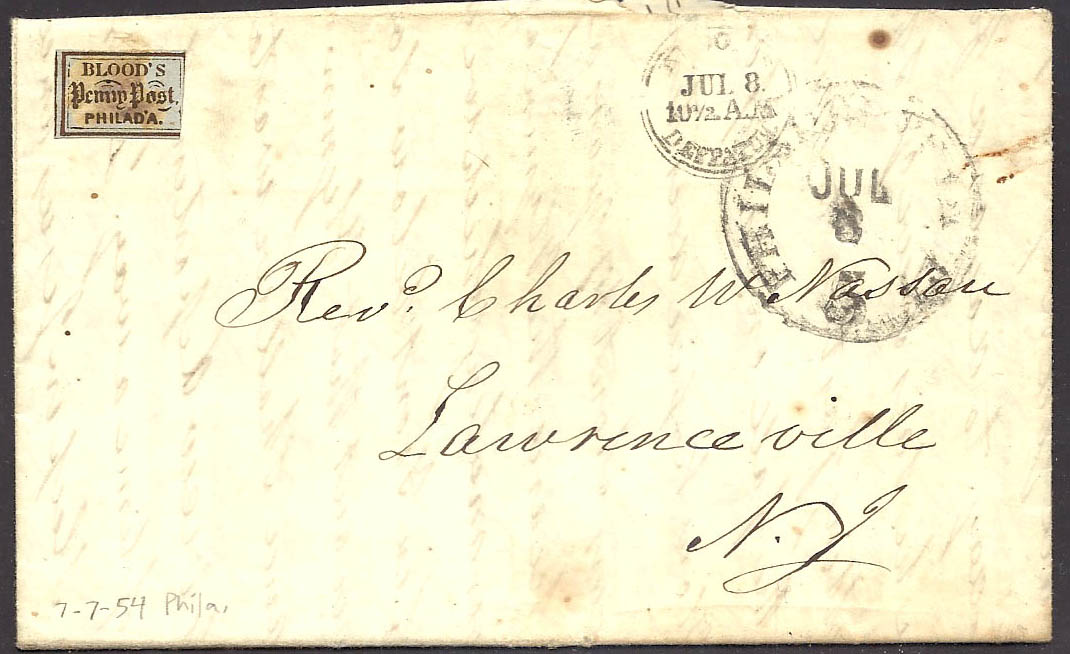 BLOOD'S
Penny Post,
PHILAD'A.
JUL 8.
10½ A.M
DESPATCH
JUL
8
Revd. Charles W Nassau
Lawrenceville
N. J
7-7-54 Phila.